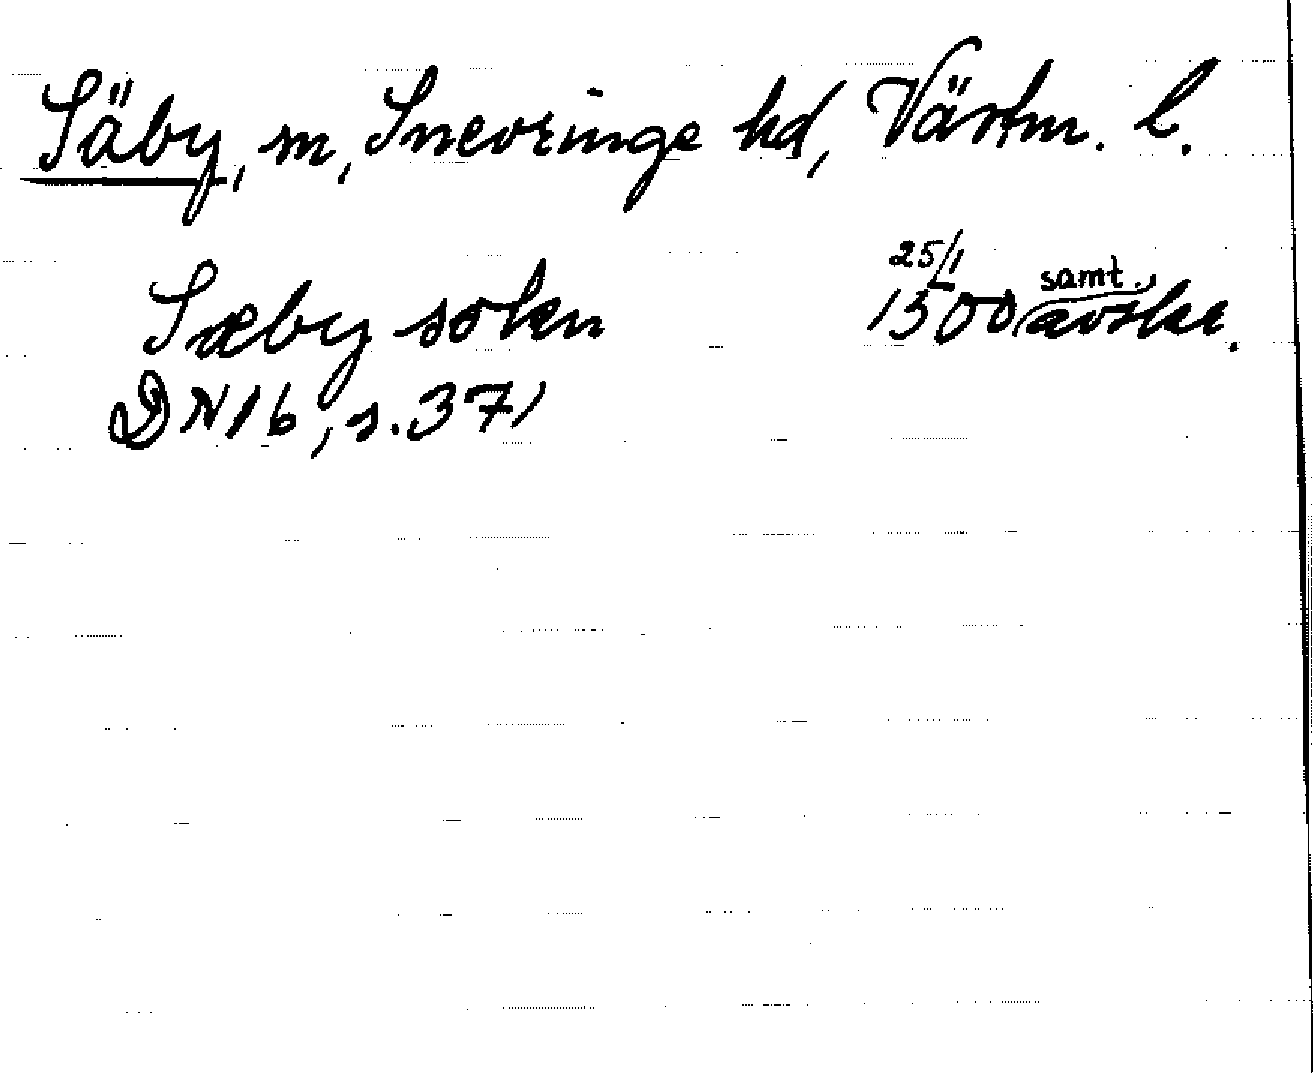 Säby, sn, Snevringe hd, Västm. l.
Sæby sokn 25/1 1500 samt. avskr.
DN 16, s. 371